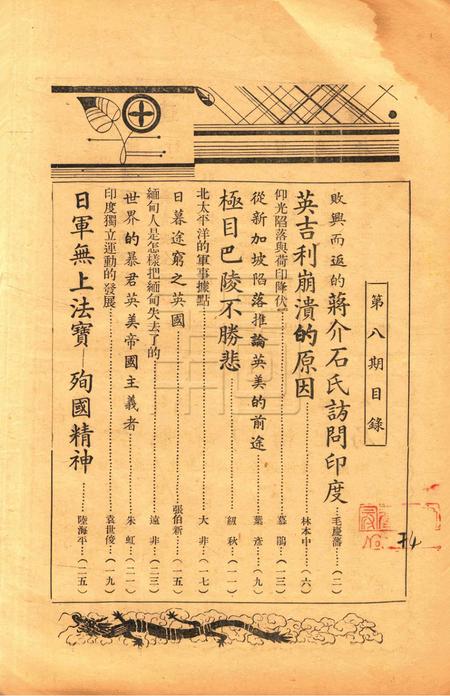 第八期目錄
敗興而返的蔣介石氏訪問印度……毛慶藩（二）
英吉利崩潰的原因……林本中（六）
仰光陷落與荷印降伏……慕鵑（一三）
從新加坡陷落推論英美的前途……葉彥（九）
極目巴陵不勝悲……紐秋（一一）
北太平洋的軍事據點……大非（一七）
日暮途窮之英國……張伯新（一五）
緬甸人是怎樣把緬甸失去了的……遠非（二三）
世界的暴君英美帝國主義者……朱虹（二一）
印度獨立運動的發展……袁世俊（一九）
日軍無上法寶——殉國精神……陸海平（二五）